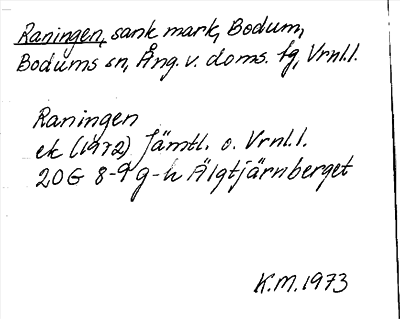 Raningen, sank mark, Bodum,
Bodums sn, Ång. v. doms. tg, Vrnl.l.
Raningen
ek (1972) Jämtl. o. Vrnl.l.
20G 8-9 g-h Älgtjärnberget
K.M. 1973